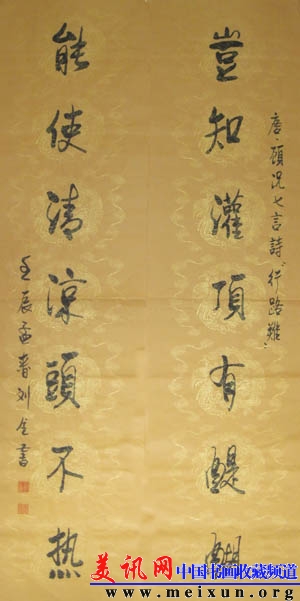 唐·顧况七言詩“行路難”
豈知灌頂有醍醐
能使清涼頭不热
壬辰孟春刘書
美讯网 中国书画收藏频道
www.meixun.org